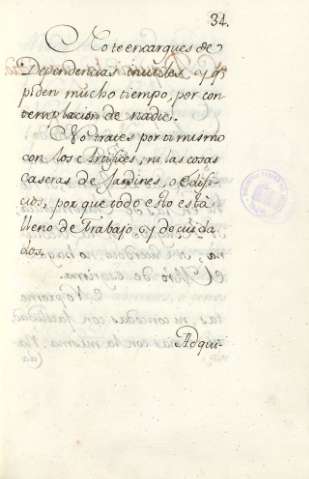 34.
No te encargues de
Dependencias inutiles y q.e
piden mucho tiempo, por con
templacion de nadie.
No trates por ti mismo
con los Artifices, ni las cosas
Caseras de Jardines, o Edifi-
cios, por que todo esto està
lleno de Trabajo, y de cuida
dos.
Adqui-